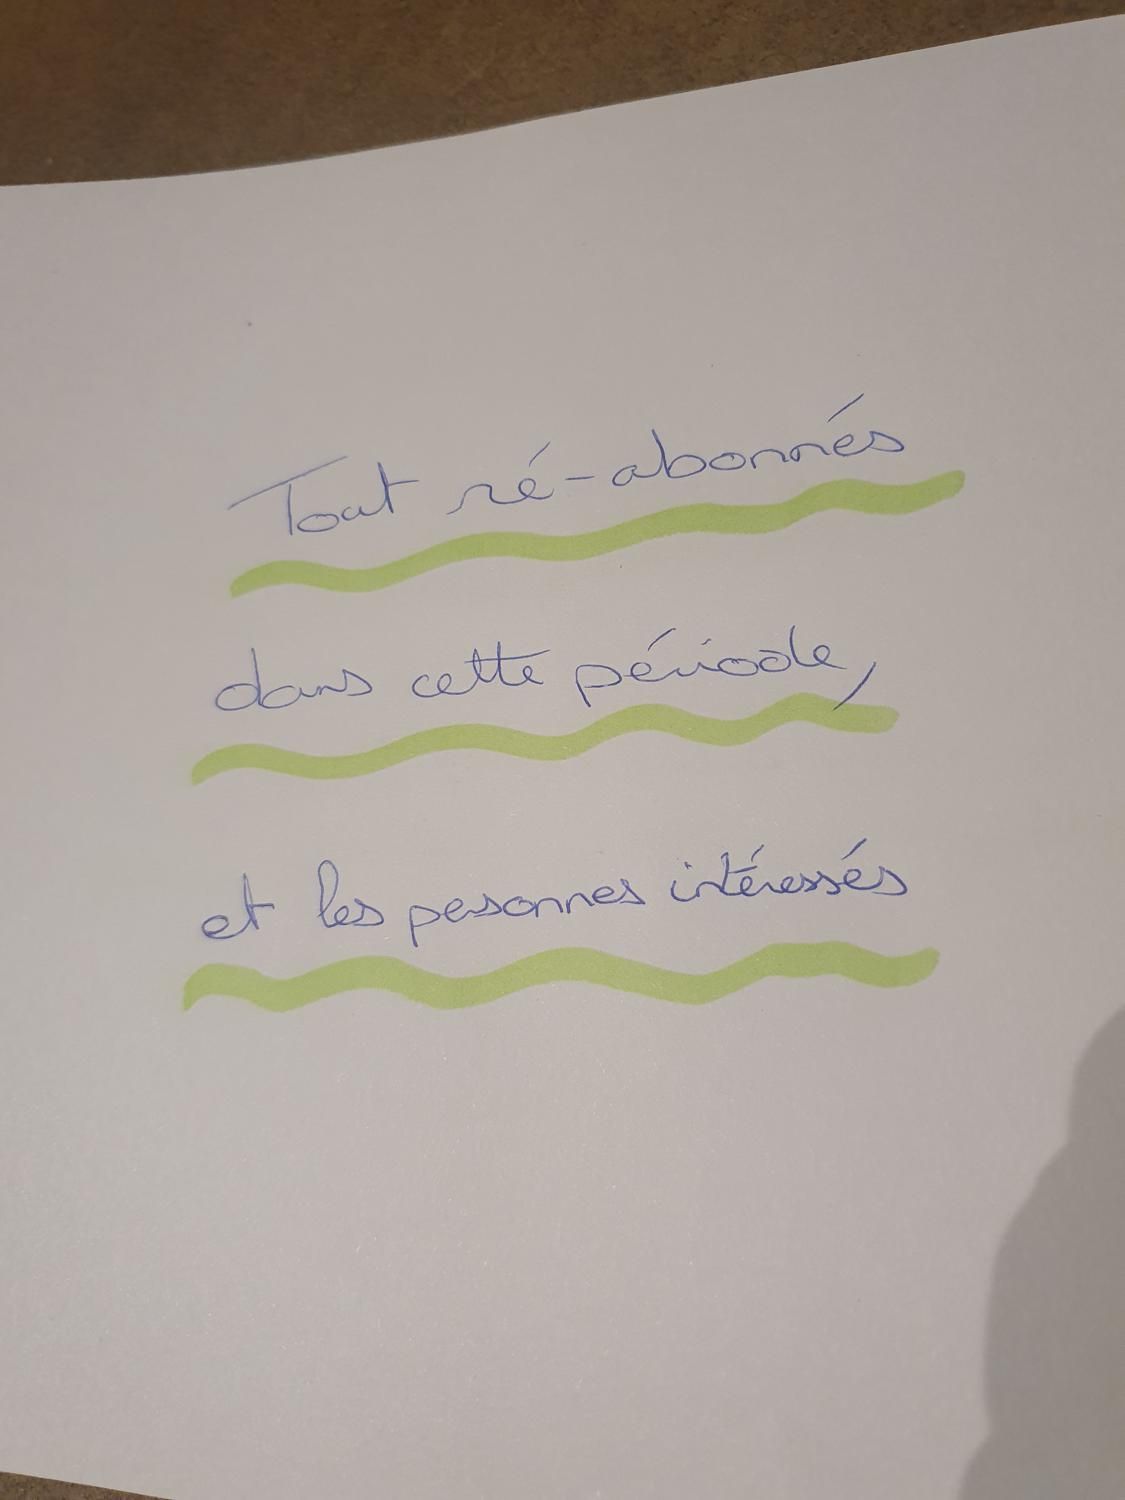 Tout ré-abonnés
dans cette période,
et les pesonnes intéressés